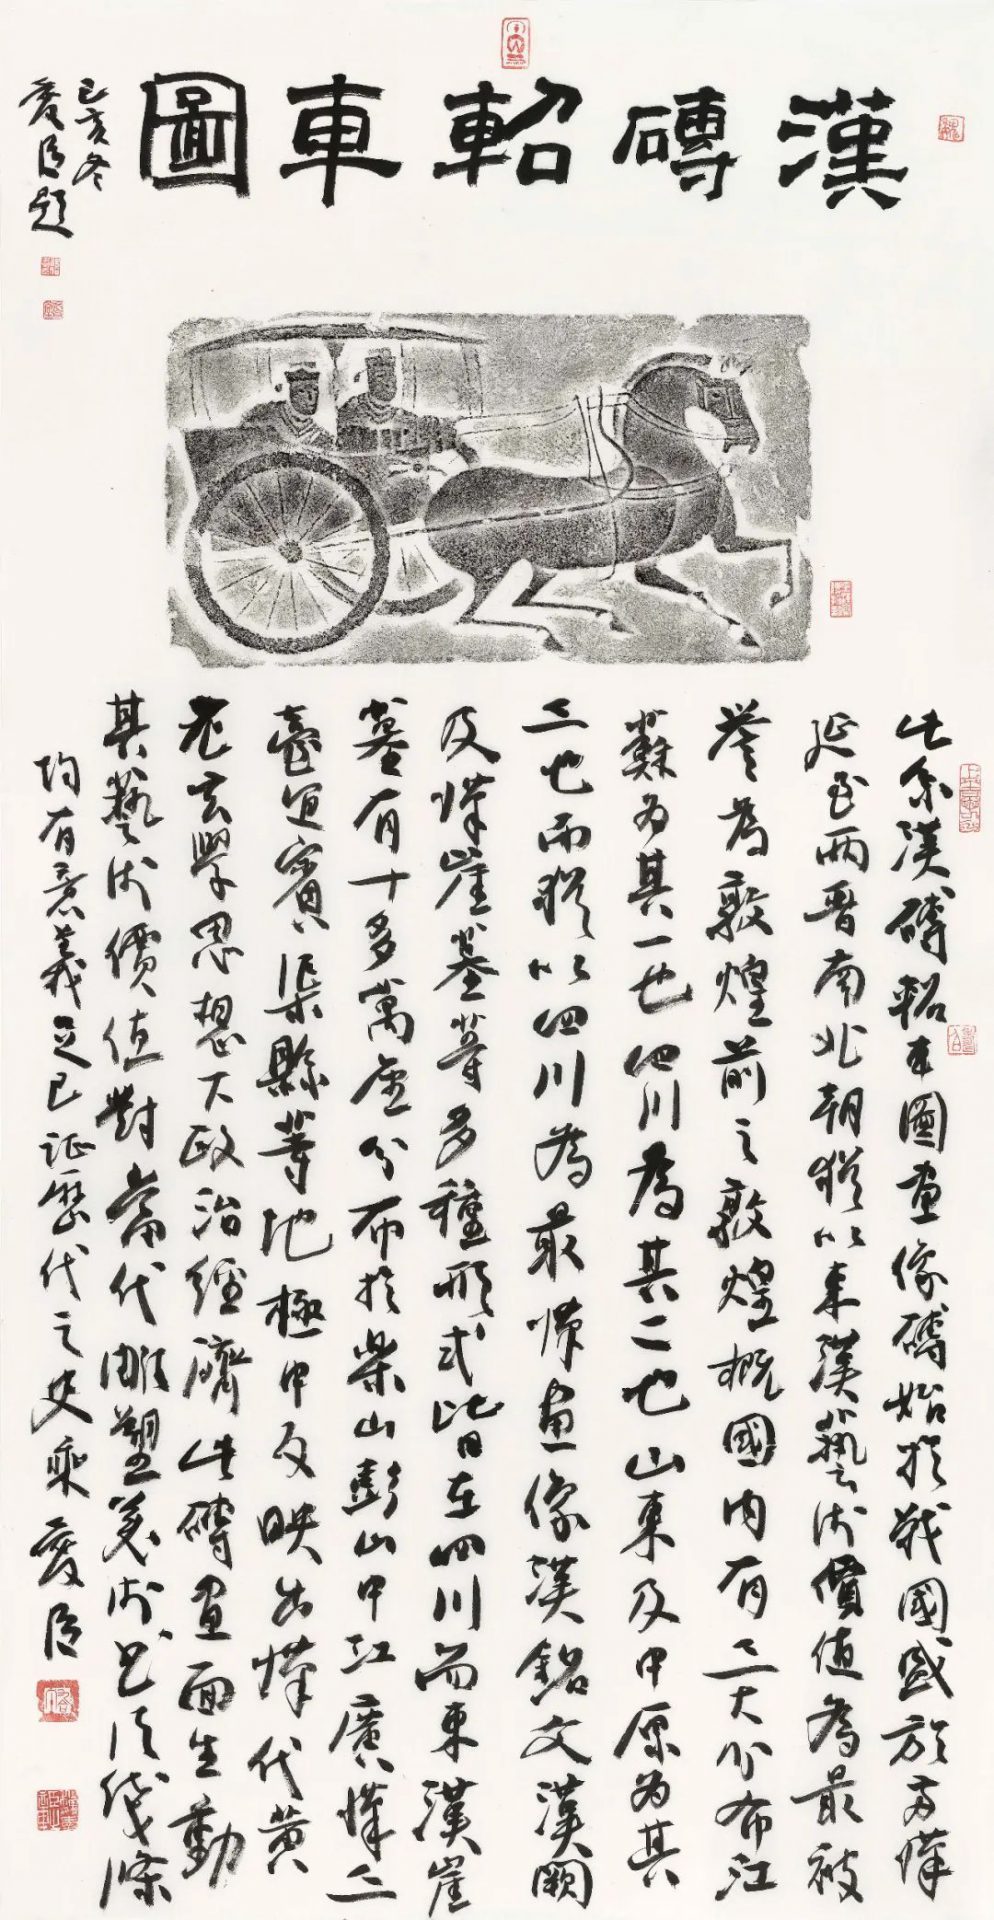 漢磚軺車圖
己亥冬
題
此系漢磚軺車圖畫像磚始於戰國盛於兩漢
延至兩晉南北朝猶以東漢藝術價值為最被
譽為敦煌前之敦煌概國內有三大分布江
蘇為其一也四川為其二也山東及中原為其
三也而猶以四川為最漢畫像漢銘文漢闕
及漢崖墓等多種形式皆在四川而東漢崖
墓有十多萬座分布於樂山彭山中江廣漢三
臺宜賓渠縣等地極中反映出漢代黃
老玄學思想下政治經濟此磚畫面生動
其藝術價值對當代雕塑美術書法線條
均有意義足已証歷代之史乘